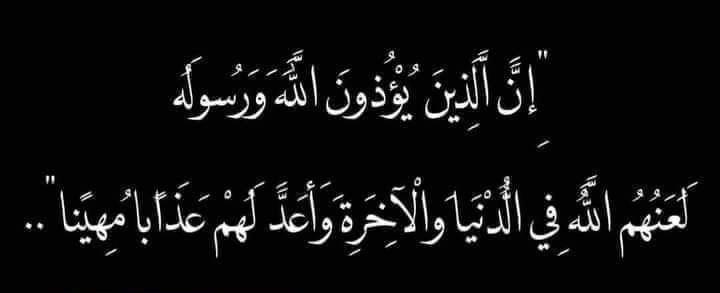 "إِنَّ الَّذِينَ يُؤْذُونَ اللَّهَ وَرَسُولَهُ
لَعَنَهُمُ اللَّهُ فِي الدُّنْيَا وَالْآخِرَةِ وَأَعَدَّ لَهُمْ عَذَابًا مُهِينًا"..